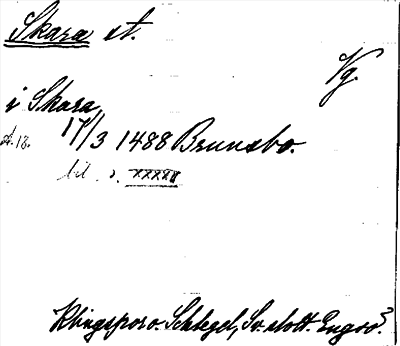 Skara st.
Vg.
i Skara
17/3 1488 Brunsbo.
Klingspor o. Schlegel, Sv. slott. Engsö.